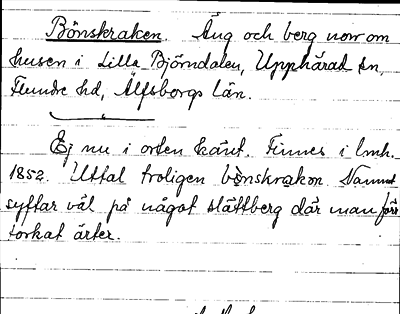 Bönskraken. Äng och berg norr om
husen i Lilla Björndalen, Upphärad sn,
Flundre hd, Älfsborgs län.
Ej nu i orten känt. Finnes i lmh.
1852. Uttal troligen bönskrakon. Namnet
syftar väl på något slättberg där man förr
torkat ärter.